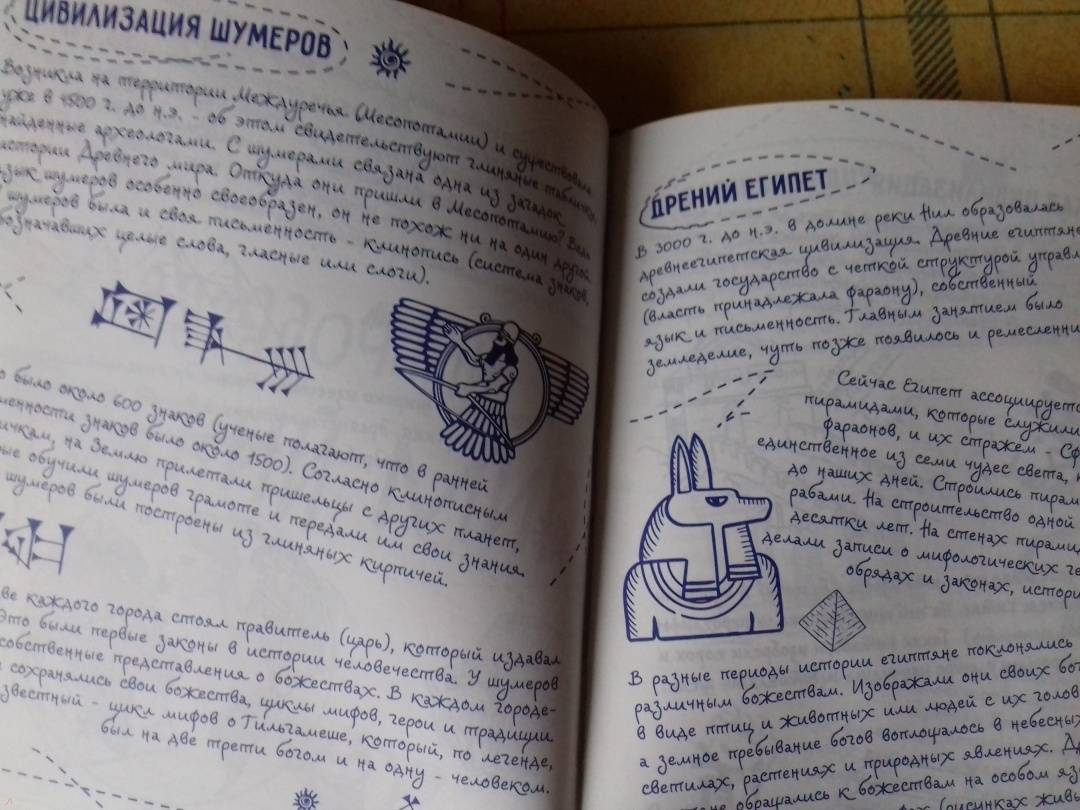 ЦИВИЛИЗАЦИЯ ШУМЕРОВ
Возникла на территории Междуречья (Месопотамии) и существовала
уже в 4500 г. до н.э. - об этом свидетельствуют глиняные таблички,
найденные археологами. С шумерами связана одна из загадок
истории Древнего мира. Откуда они пришли в Месопотамию? Ведь
язык шумеров особенно своеобразен, он не похож ни на один другой.
шумеров была и своя письменность - клинопись (система знаков,
означавших целые слова, гласные или слоги).
было около 600 знаков (ученые полагают, что в ранней
менности знаков было около 1500). Согласно клинописным
ичкам, на Землю прилетали пришельцы с других планет,
ые обучили шумеров грамоте и передали им свои знания.
шумеров были построены из глиняных кирпичей.
ве каждого города стоял правитель (царь), который издавал
Это были первые законы в истории человечества. У шумеров
собственные представления о божествах. В каждом городе-
сохранялись свои божества, циклы мифов, герои и традиции
звестный - цикл мифов о Гильгамеше, который, по легенде,
был на две трети богом и на одну - человеком.
ДРЕНИЙ ЕГИПЕТ
В 3000 г. до н.э. в долине реки Нил образовалась
древнеегипетская цивилизация. Древние египтяне
создали государство с четкой структурой управл
(власть принадлежала фараону), собственный
язык и письменность. Главным занятием было
земледелие, чуть позже появилось и ремесленни
Сейчас Египет ассоциируется
пирамидами, которые служили
фараонов, и их стражем - Сф
единственное из семи чудес света,
до наших дней. Строились пирам
рабами. На строительство одной
десятки лет. На стенах пирамид
делали записи о мифологических ге
обрядах и законах, истори
В разные периоды истории египтяне поклонялись
различным божествам. Изображали они своих бог
в виде птиц и животных или людей с их голов
а земное пребывание богов воплощалось в небесных
светилах, растениях и природных явлениях. Д
тяне обращались к божествам на особом яз
(рисунках живы